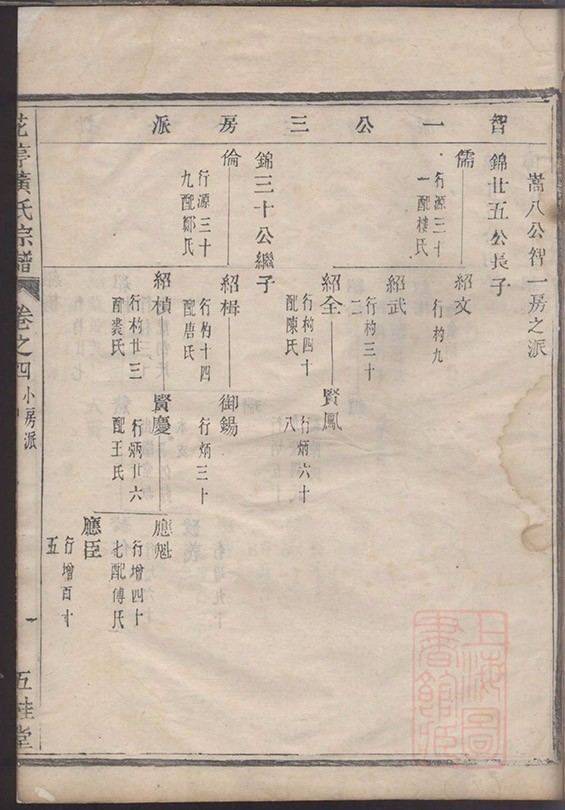 智一公三房派
嵩八公智一房之派
錦廿五公長子
儒
行源三十
一配樓氏
紹文
行杓九
紹武
行杓三十
二
紹全
行杓四十
配陳氏
賢鳳
行炳六十
八
錦三十公繼子
倫
行源三十
九配鄒氏
紹楫
行杓十四
配唐氏
御錫
行炳三十
紹楨
行杓廿三
配裘氏
賢慶
行炳廿六
配王氏
應魁
行增四十
七配傅氏
應臣
行增百十
五
花亭黃氏宗譜
卷之四
小房派
五桂堂
上海圖書館藏